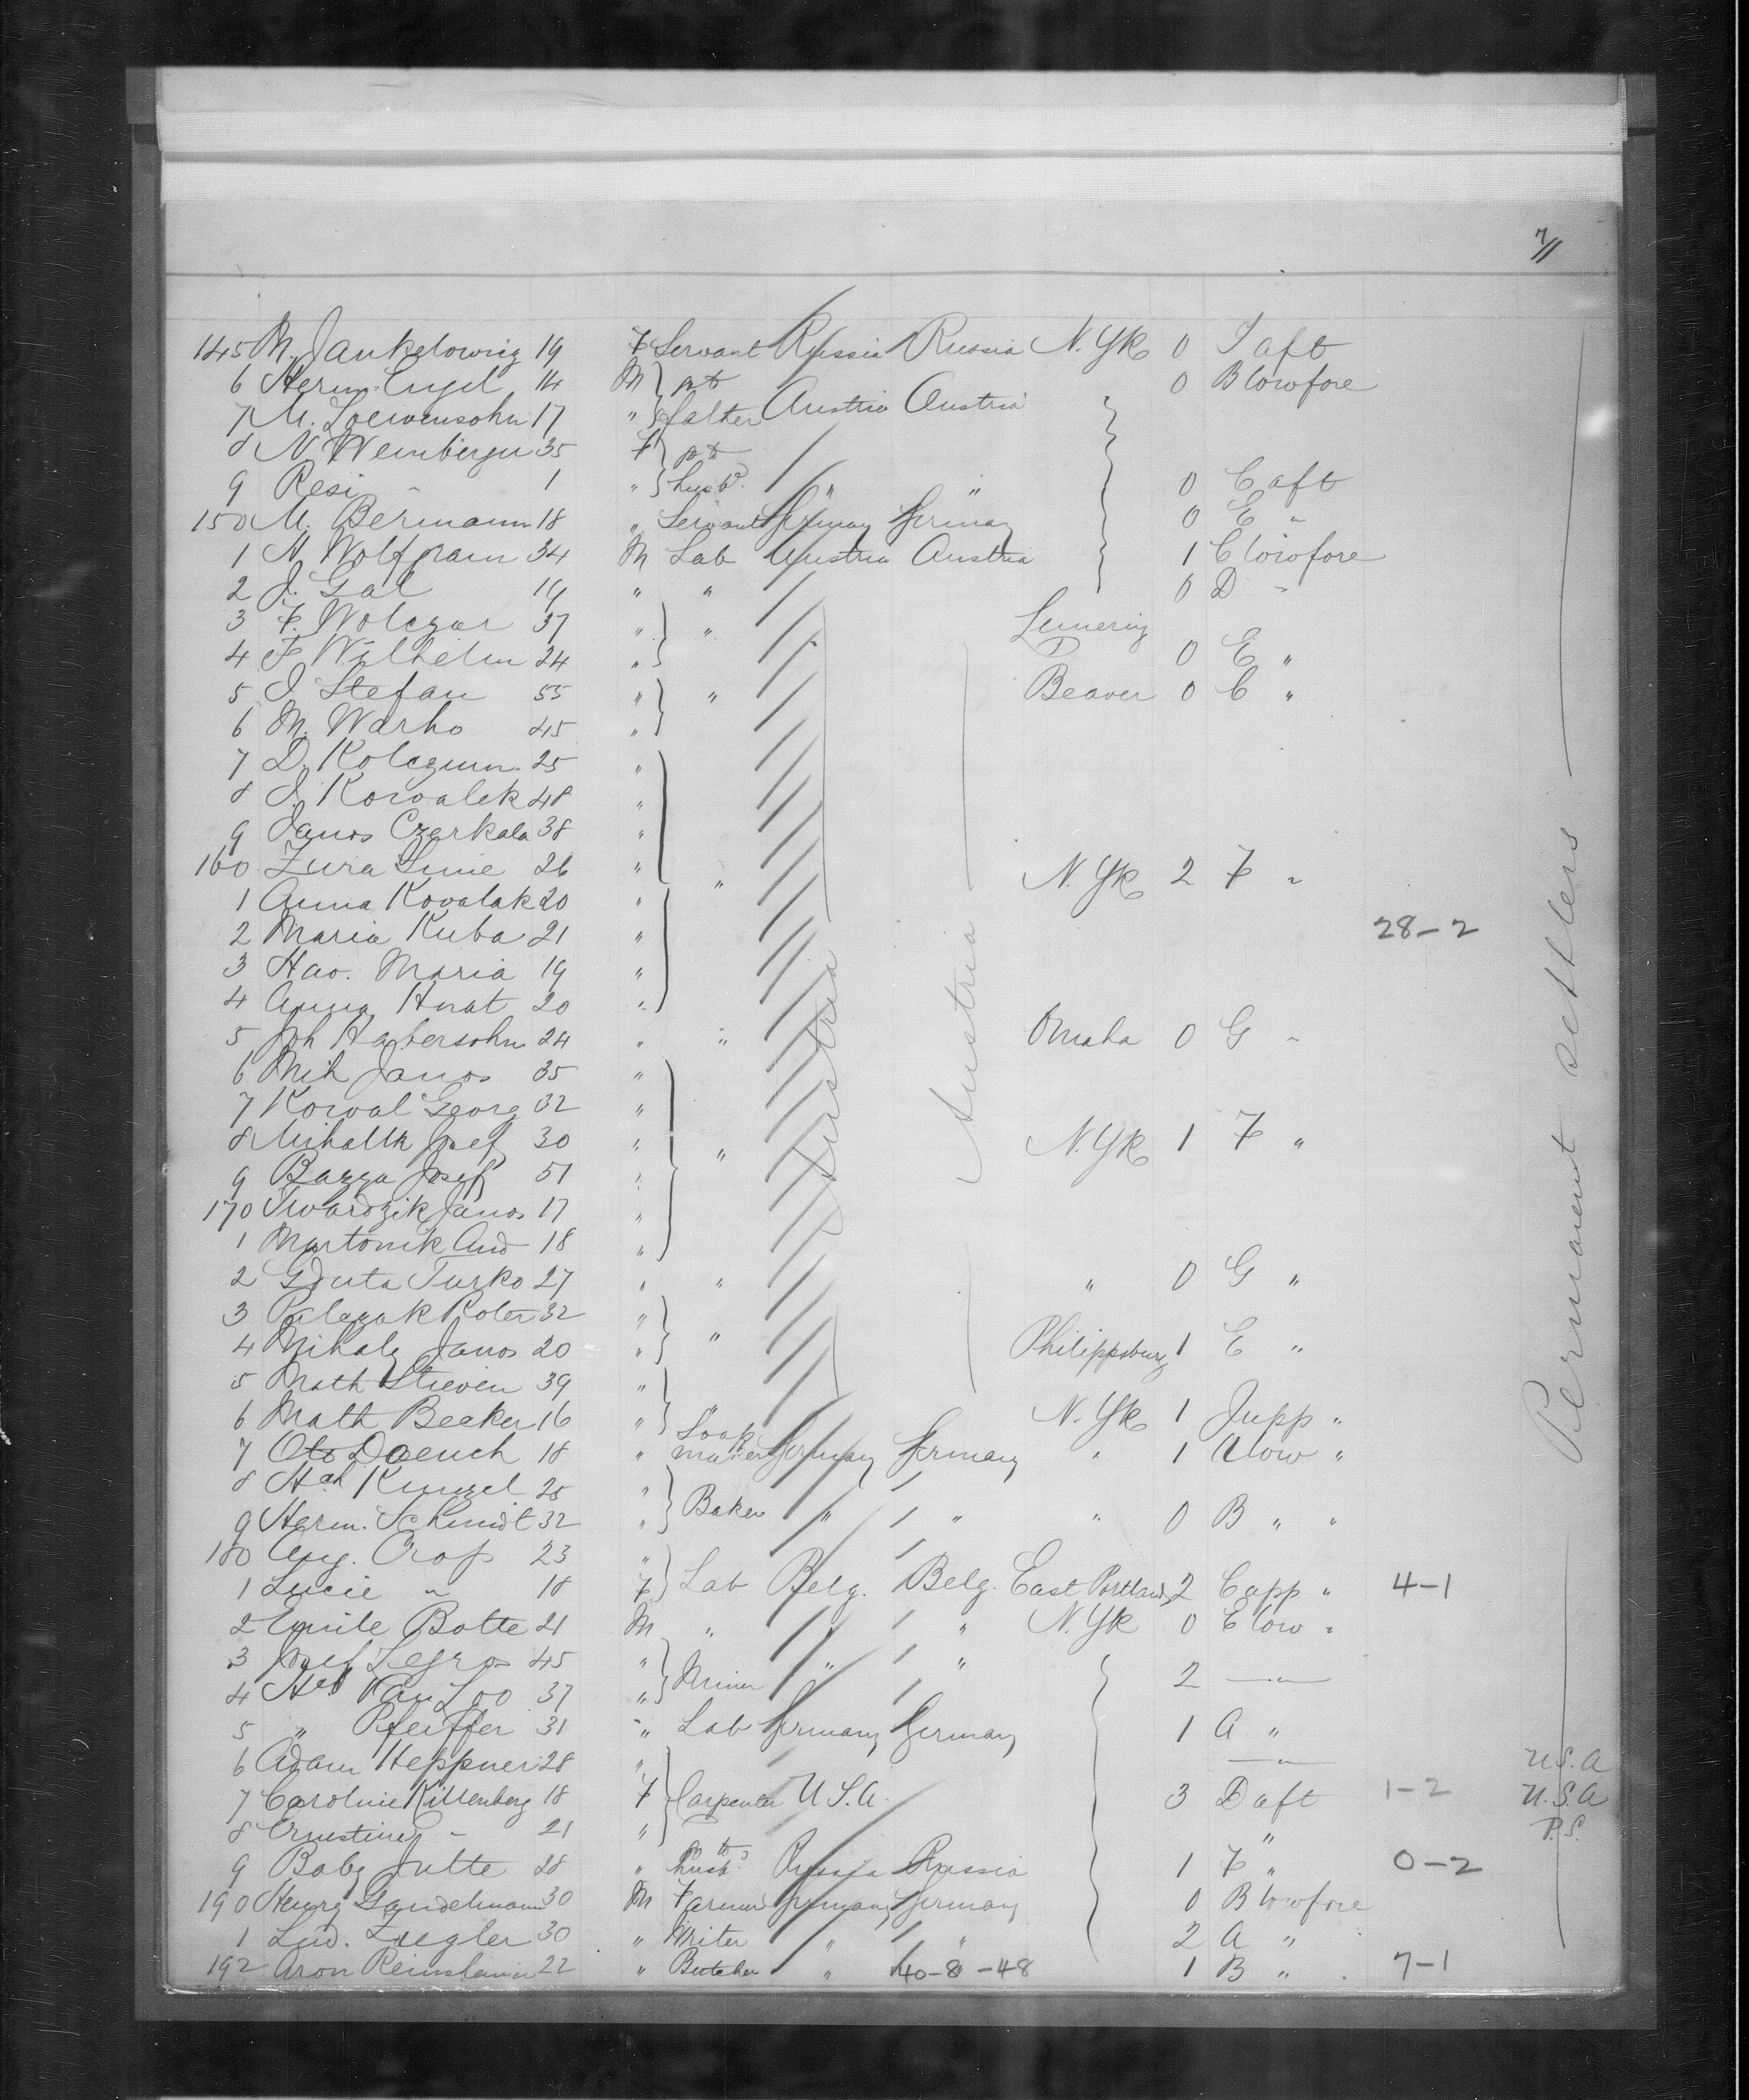 7/11
145 M. Jankelowig 19 F Servant Russia Russia N. Yk 0 I aft
6 Herm. Engel 14 M pr to 0 B lowfore
7 M. Loewensohn 17 " father Austria Austria
8 N. Weinberger 35 F pr to
9 Resi - 1 " husb. " " 0 C aft
150 M. Bermann 18 " Servant Germany Germany 0 E "
1 N. Wolfgram 34 M Lab Austria Austria 1 C lowfore
2 J. Gal 19 " " 0 D "
3 F. Wolczar 37 " "
4 F. Wilhelm 24 " 0 E "
5 J. Stefan 55 " " Beaver 0 C "
6 M. Warho 45 "
7 D. 25 "
8 J. Kowalek 48 "
9 Janos Czerkala 38 "
160 Zura 26 " " N. Yk 2 F "
1 Anna Kovalak 20 "
2 Maria Kuba 21 " 28-2
3 Hav. Maria 19 "
4 Anna Hnat 20 "
5 Joh Habersohn 24 " " Omaha 0 G "
6 Mih Janos 35 "
7 Kowal Georg 32 "
8 Mihalik Josef 30 " " N. Yk 1 F "
9 Bazza Josef 51 "
170 Twardzik Janos 17 "
1 Martonik And 18 "
2 Turko 27 " " " 0 G "
3 32 "
4 Mihaly Janos 20 " " Philippsburg 1 E "
5 Math Stieven 39 "
6 Math Becker 16 " " N. Yk 1 J upp "
7 Otto Daench 18 " Soap maker Germany Germany " 1 low "
8 Hch Kunzel 25 "
9 Herm. Schmidt 32 " Baker " " " 0 B " "
180 Aug. Crop 23 "
1 Lucie " 18 F Lab Belg. Belg. East Portland 2 C upp " 4-1
2 Emile Botte 21 M " " " N. Yk 0 E low "
3 Josef Legros 45 " " " 2 — " —
4 Hch Van Loo 37 " Miner
5 " Pfeiffer 31 " Lab Germany Germany 1 A "
6 Adam Heppner 28 " — " — U.S.A
7 Caroline Kittenberg 18 F Carpenter U.S.A. 3 D aft 1-2 U.S.A
8 Ernestine - 21 " " P.S.
9 Baby Jutte 28 " to husb. Russia Russia 1 F " 0-2
190 Henry Gandelmann 30 M Farmer Germany Germany 0 B lowfore
1 Lud. Ziegler 30 " Writer " " 2 A "
192 Aron 22 " Butcher " 40-8-48 1 B " 7-1
Austria
Austria
Permanent settlers